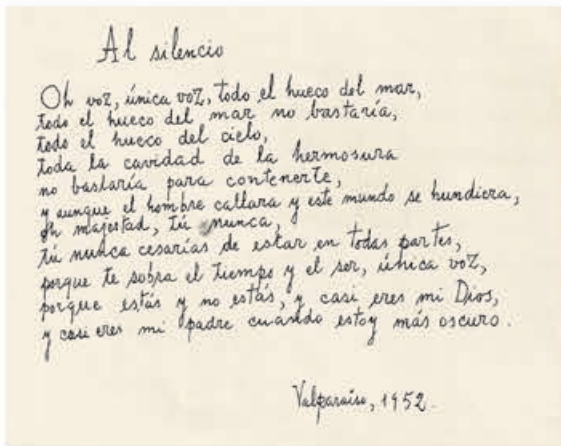 Al silencio
Oh voz, única voz, todo el hueco del mar,
todo el hueco del mar no bastaría,
todo el hueco del cielo,
toda la cavidad de la hermosura
no bastaría para contenerte,
y aunque el hombre callara y este mundo se hundiera,
oh majestad, tú nunca,
tú nunca cesarías de estar en todas partes,
porque te sobra el tiempo y el ser, única voz,
porque estás y no estás, y casi eres mi Dios,
y casi eres mi padre cuando estoy más oscuro.
Valparaíso, 1952.